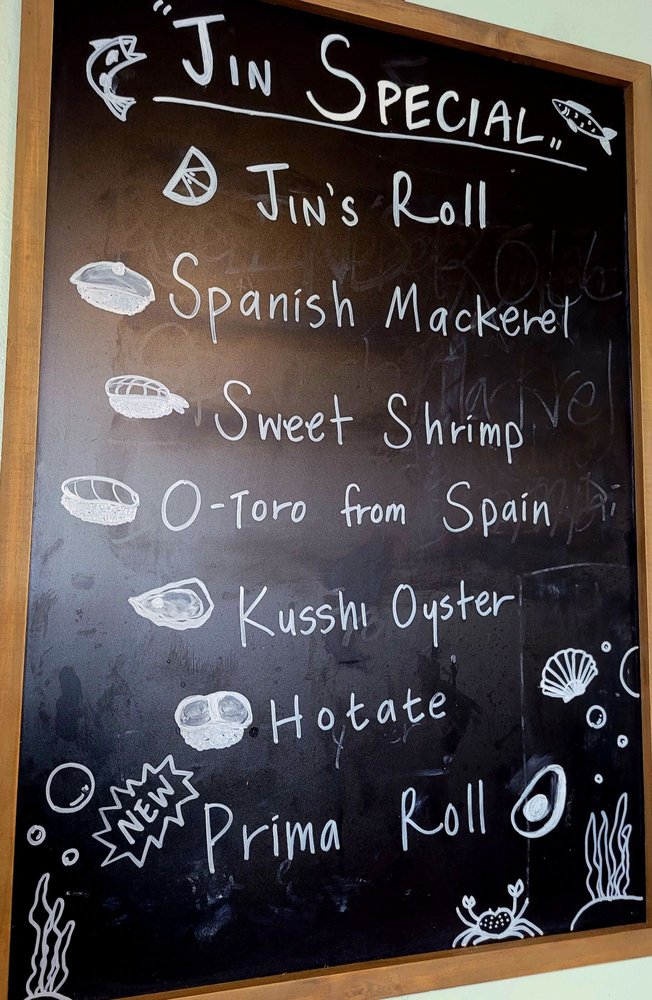 "JIN SPECIAL"
JIN'S Roll
Spanish Mackerel
Sweet Shrimp
O-TORO from Spain
Kusshi Oyster
Hotate
NEW Prima Roll